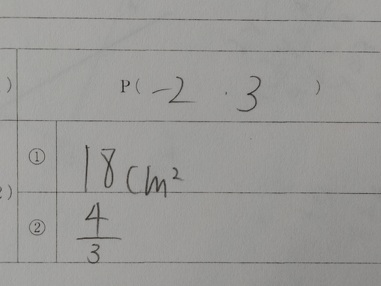 ) P( -2 . 3 )
① 18cm²
2)
② 4/3